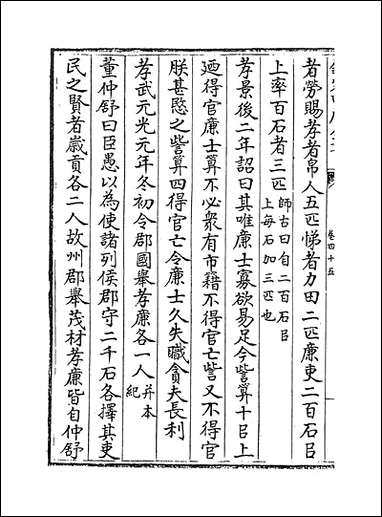 卷四十五
者勞賜孝者帛人五匹悌者力田二匹廉吏二百石㠯
上率百石者三匹師古曰自二百石㠯
上每石加三匹也
孝景後二年詔曰其唯廉士寡欲易足今訾算十㠯上
廼得官廉士算不必衆有市籍不得官亡訾又不得官
朕甚愍之訾算四得官亡令廉士久失職貪夫長利
孝武元光元年冬初令郡國舉孝廉各一人并本
紀
董仲舒曰臣愚以為使諸列侯郡守二千石各擇其吏
民之賢者歲貢各二人故州郡舉茂材孝廉皆自仲舒